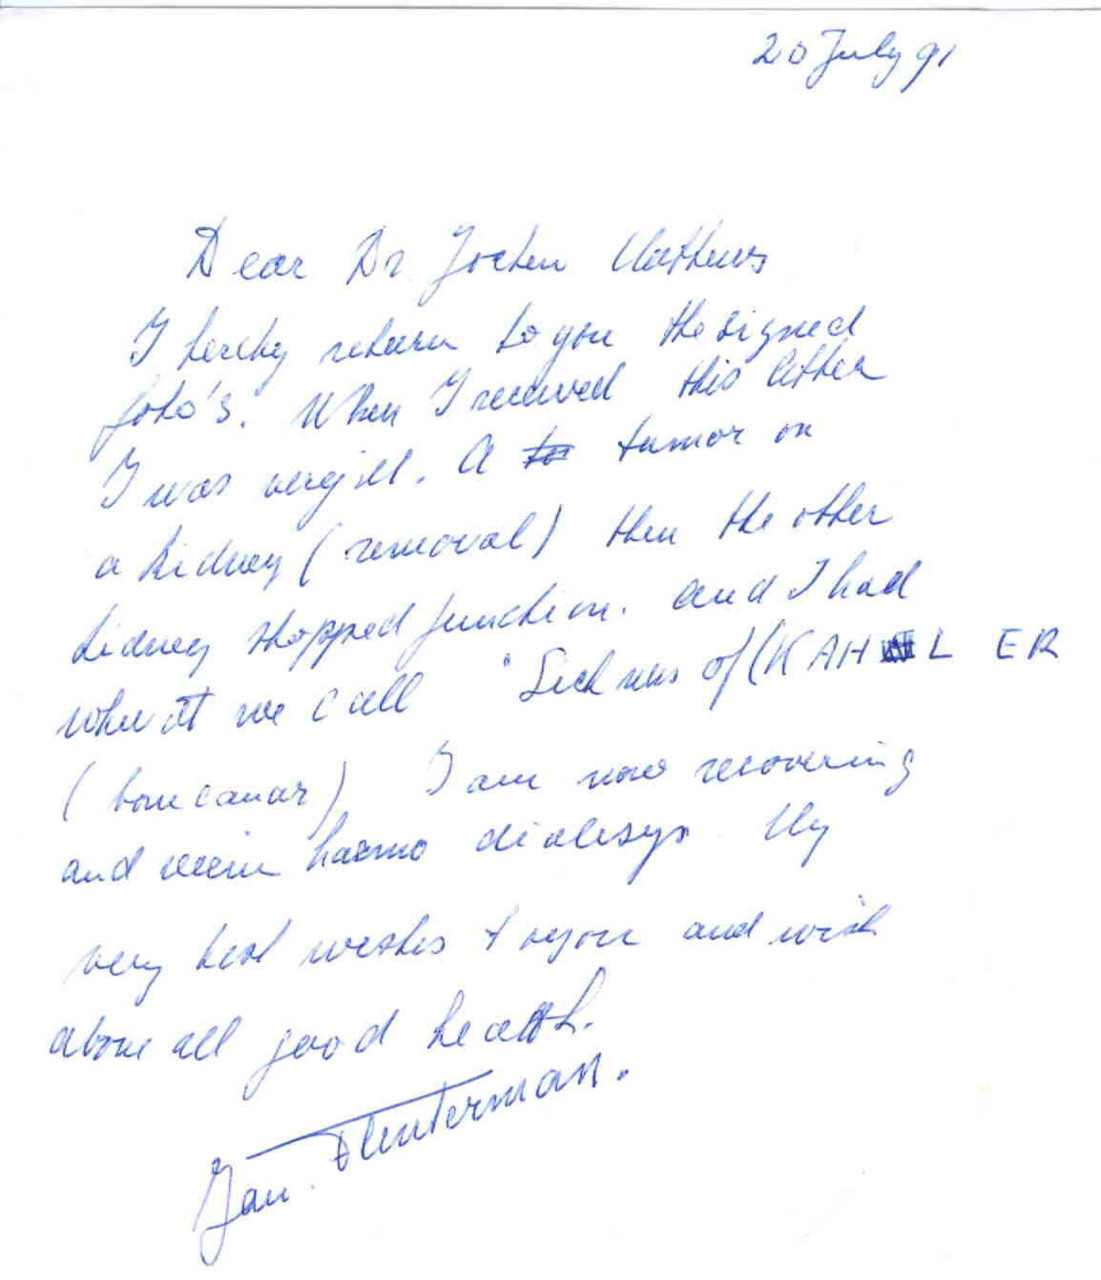 20 July 91
Dear Dr. Jochen Mathews
I hereby return to you the signed
foto's. When I received this letter
I was very ill. A to tumor on
a kidney (removal) then the other
kidney stopped function. and I had
what we call "Sickness of (KAHLER
(bone cancer) I am now recovering
and haemo dialesys. My
very best wishes to you and wish
above all good health.
Jan Plenterman.